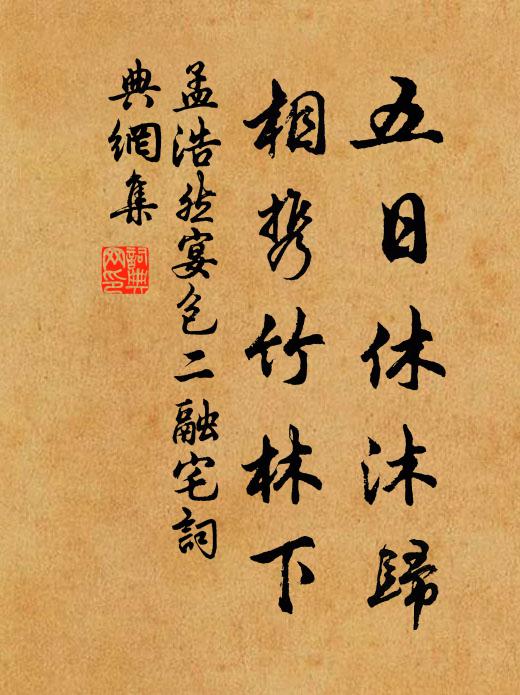 五日休沐歸
相携竹林下
孟浩然宴包二融宅詞
典網集
詞典網印